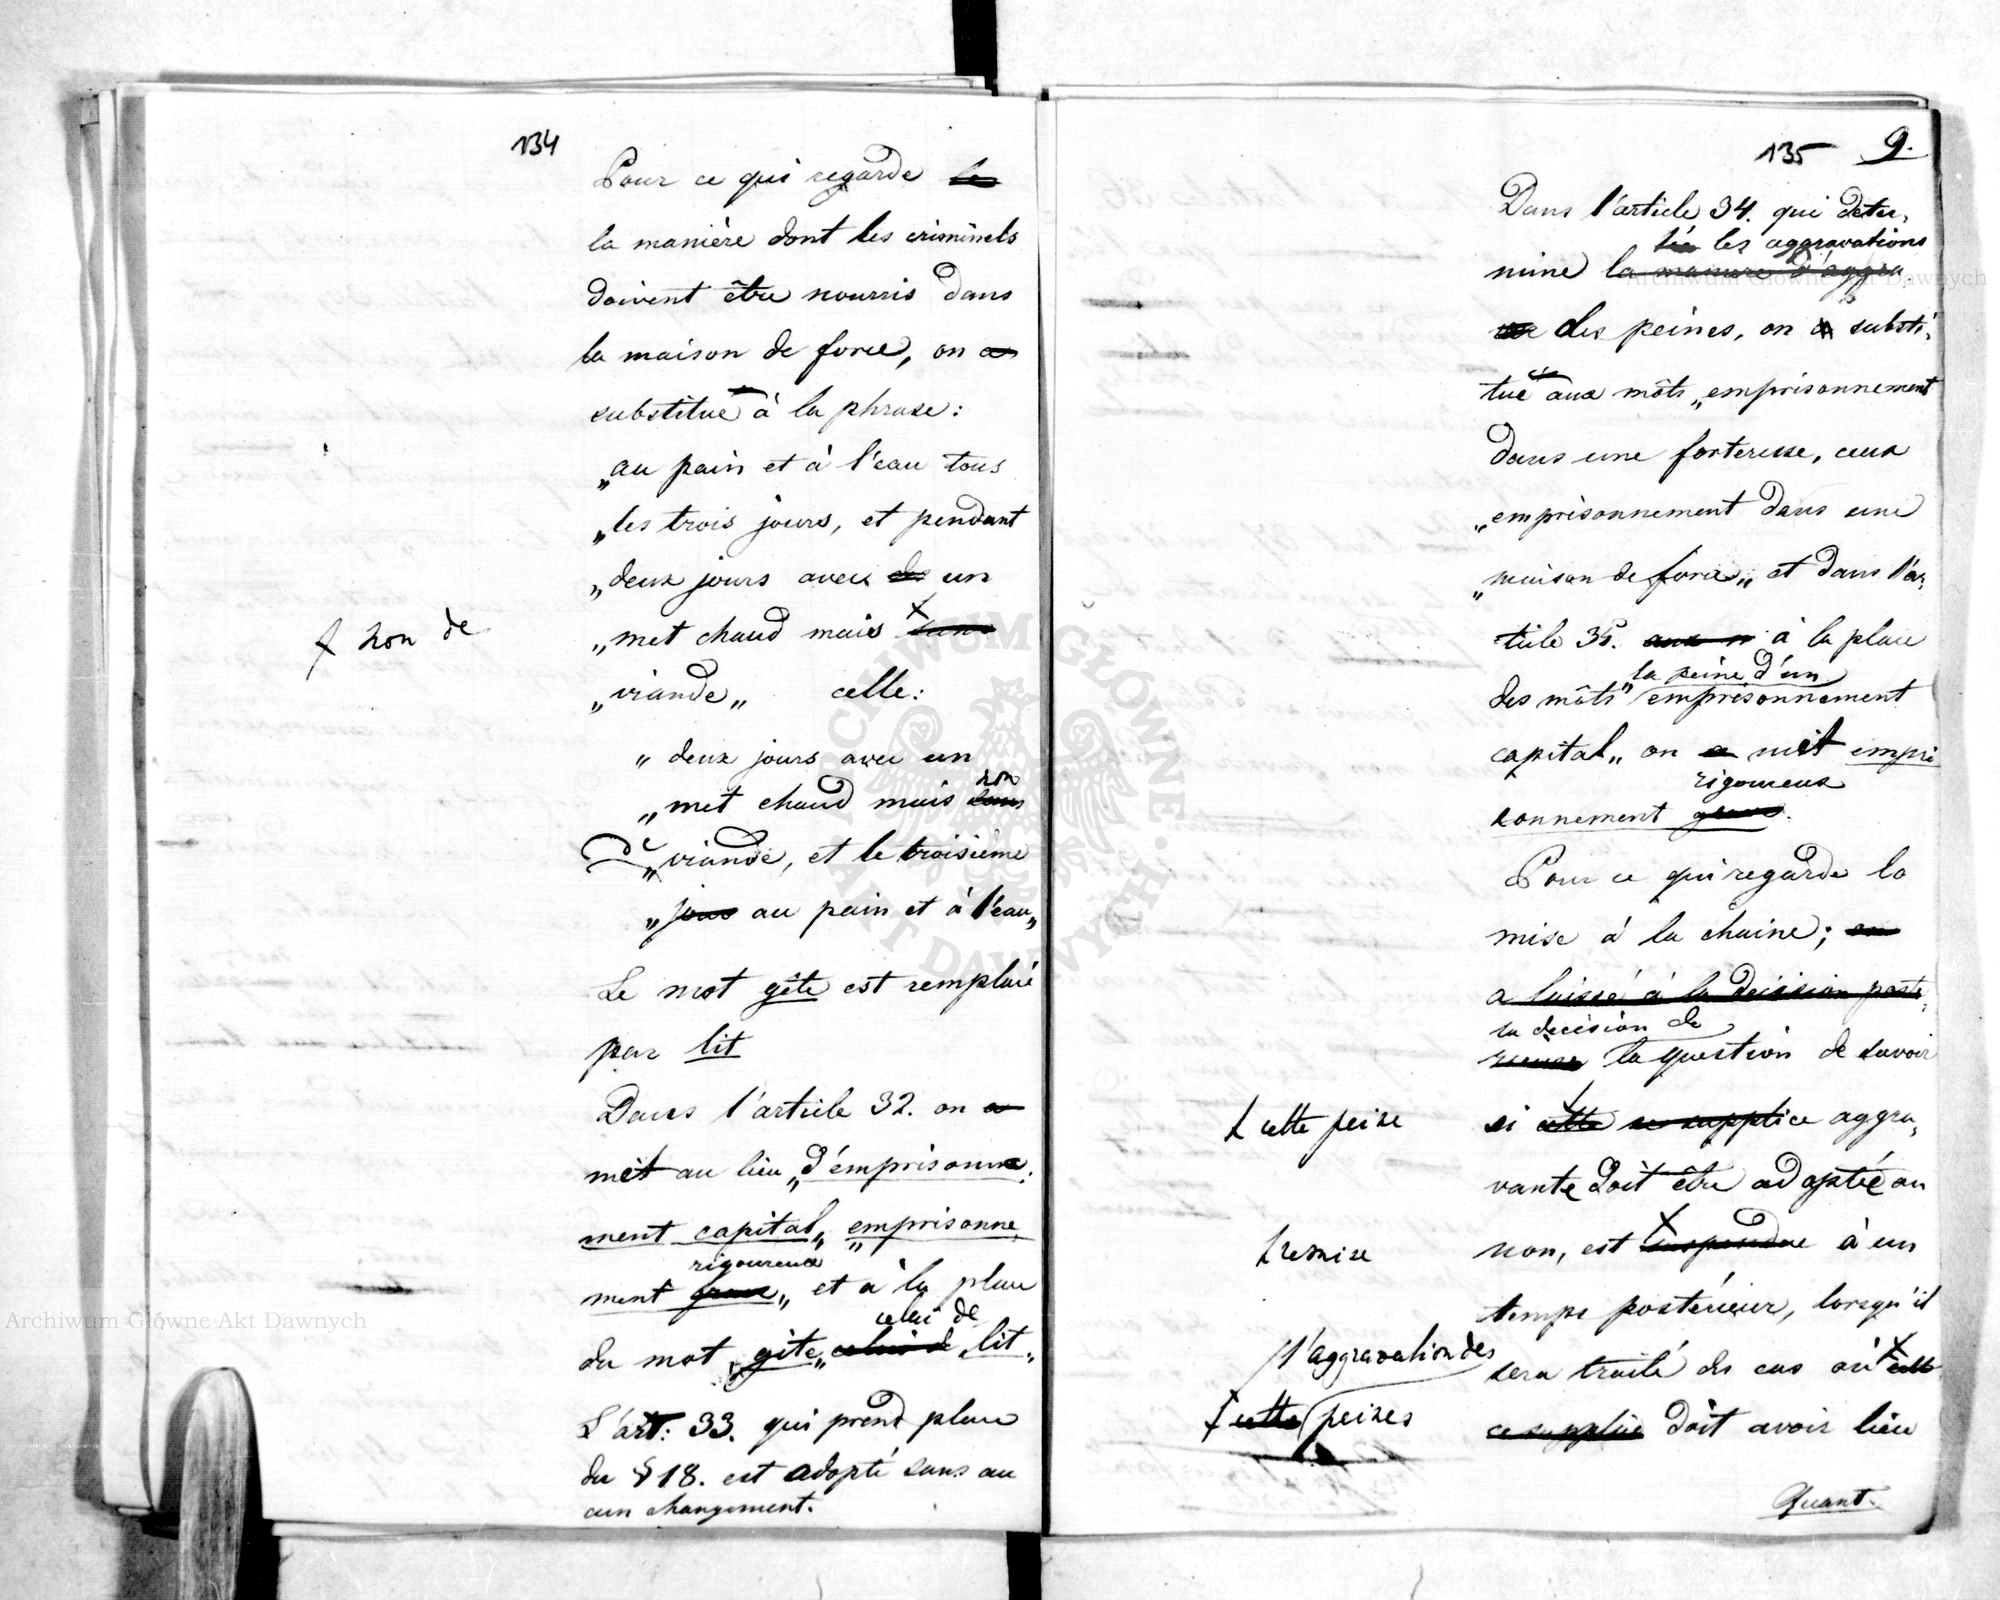 134
Pour ce qui regarde le
la manière dont les criminels
doivent être nourris dans
la maison de force, on a
substitue à la phrase:
„au pain et à l'eau tous
„les trois jours, et pendant
„deux jours avec de un
„met chaud mais sans
ƚ non de
„viande„ celle:
„deux jours avec un
non
„met chaud mais sans
de
„viande, et le troisième
„jour au pain et à l'eau„
Le mot gête est remplacé
par lit
Dans l'article 32. on a
mèt au lieu „d'emprisonne-
ment capital„ „emprisonne
rigoureux
ment grave„ et à la place
celui de
du mot „gîte„ celui de „lit„
L'art: 33. qui prend place
du § 18. est adopté sans au
cun changement.
135 9.
Dans l'article 34. qui deter-
les aggravations
mine la manière d'aggra
des peines, on a substi-
tue aux môts „emprisonnement
dans une forteresse, ceux
„emprisonnement dans une
„maison de force„ et dans l'ar-
ticle 35. aux m à la place
la peine d'un
des môts „emprisonnement
capital„ on a mèt empri
rigoureux
sonnement grave.
Pour ce qui regarde la
mise à la chaine; on
a laissé à la décision posté-
la décision de
rieure la question de savoir
ƚ cette peine
si cette ce supplice aggra-
vante doit être adoptée ou
ƚ remise
non, est suspendue à un
temps postérieur, lorsqu'il
l'aggravation des
sera traité des cas où cette
ƚ cette peines
ce supplice doit avoir lieu
Quant.
Archiwum Główne Akt Dawnych
Archiwum Główne Akt Dawnych
ARCHIWUM GŁÓWNE AKT DAWNYCH